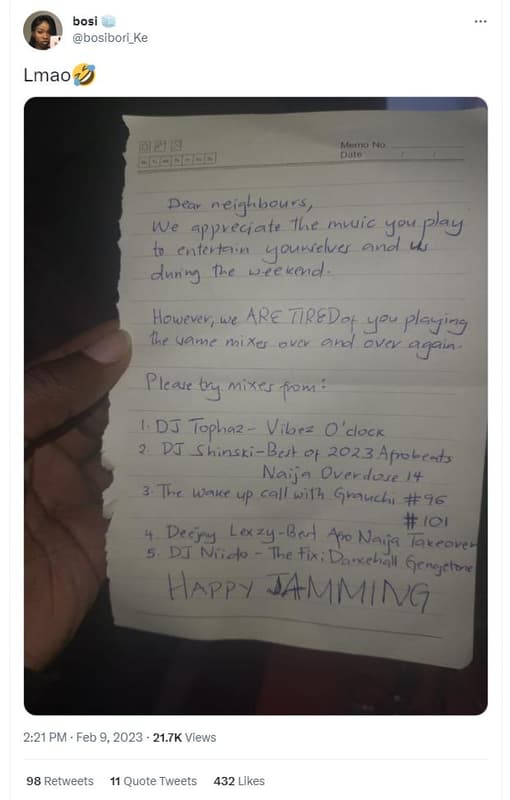 bosi
@bosibori_Ke
Lmao🤣
Memo No.
Date / /
Dear neighbours,
We appreciate the music you play
to entertain yourselves and us
during the weekend.
However, we ARE TIRED of you playing
the same mixes over and over again.
Please try mixes from:
1. DJ Tophaz - Vibez O'clock
2. DJ Shinski - Best of 2023 Afrobeats
Naija Overdose 14
3. The wake up call with Grauchi #96
#101
4. Deejay Lexzy - Best Afro Naija Takeover
5. DJ Niido - The Fix; Dancehall Gengetone
HAPPY JAMMING
2:21 PM · Feb 9, 2023 · 21.7K Views
98 Retweets 11 Quote Tweets 432 Likes